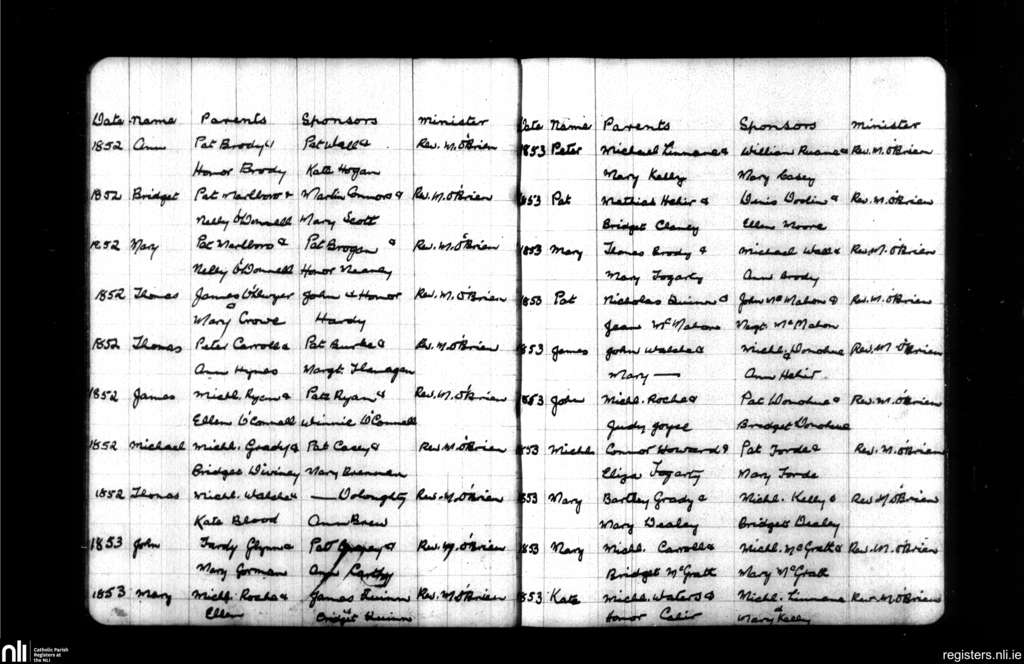 Date Name Parents Sponsors Minister
1852 Ann Pat Brody & Pat Wall & Rev. M. O'Brien
Honor Brody Kate Hogan
1852 Bridget Pat Marlboro & Martin Connors & Rev. M. O'Brien
Nelly O'Donnell Mary Scott
1852 Mary Pat Marlboro & Pat Brogan & Rev. M. O'Brien
Nelly O'Donnell Honor Neaney
1852 Thomas James O'Dwyer & John & Honor Rev. M. O'Brien
Mary Crowe Hardy
1852 Thomas Peter Carroll & Pat Burke & Rev. M. O'Brien
Ann Hynes Margt. Flanagan
1852 James Michl. Ryan & Patk Ryan & Rev. M. O'Brien
Ellen O'Connell Winnie O'Connell
1852 Michael Michl. Grady & Pat Casey & Rev. M. O'Brien
Bridget Diviney Mary Brennan
1852 Thomas Michl. Walsh & — Doloughty Rev. M. O'Brien
Kate Blood Ann Brew
1853 John Tardy Glynn & Pat & Rev. M. O'Brien
Mary Gorman Ann Carthy
1853 Mary Michl. Roche & James Quinn Rev. M. O'Brien
Ellen & Bridget Quinn
Date Name Parents Sponsors Minister
1853 Peter Michael Linnane & William Ruane & Rev. M. O'Brien
Mary Kelly Mary Casey
1853 Pat Mathias Hehir & Denis Doolin & Rev. M. O'Brien
Bridget Clancy Ellen Moore
1853 Mary Thomas Brody & Michael Wall & Rev. M. O'Brien
Mary Fogarty Ann Brody
1853 Pat Nicholas Quinn & John McMahon & Rev. M. O'Brien
Jean McMahon Margt. McMahon
1853 James John Walsh & Michl. Donohue & Rev. M. O'Brien
Mary — Ann Hehir
1853 John Michl. Roche & Pat Donohue & Rev. M. O'Brien
Judy Joyce Bridget Donohue
1853 Michl. Connor Howard & Pat Forde & Rev. M. O'Brien
Eliza Fogarty Mary Forde
1853 Mary Bartley Grady & Michl. Kelly & Rev. M. O'Brien
Mary Dealey Bridget Dealey
1853 Mary Michl. Carroll & Michl. McGrath & Rev. M. O'Brien
Bridget McGrath Mary McGrath
1853 Kate Michl. Waters & Michl. Linnane Rev. M. O'Brien
Honor Cahir & Mary Kelly
nli Catholic Parish
Registers at
the NLI
registers.nli.ie